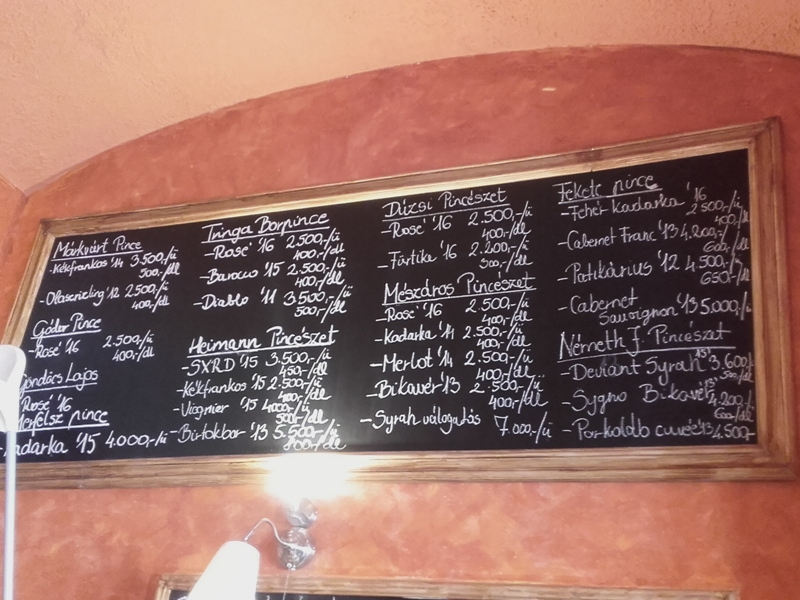 Márkvárt Pince
-Kékfrankos '14 3.500,-/ü
500,-/dl
-Olaszrizling '12 2.500,-/ü
400,-/dl
Gódor Pince
-Rosé '16 2.500,-/ü
400,-/dl
Lajos
Rosé '16
pince
'15 4.000,-/ü
Tringa Borpince
-Rosé '16 2.500,-/ü
400,-/dl
-Barocco '15 2.500,-/ü
400,-/dl
-Diablo '11 3.500,-/ü
500,-/dl
Heimann Pincészet
-SXRD '15 3.500,-/ü
450,-/dl
-Kékfrankos '15 2.500,-/ü
400,-/dl
-Viognier '15 4000,-/ü
500,-/dl
-Birtokbor '13 5.500,-/ü
800,-/dl
Dúzsi Pincészet
-Rosé '16 2.500,-/ü
400,-/dl
-Fürtika '16 2.200,-/ü
300,-/dl
Mészáros Pincészet
-Rosé '16 2.500,-/ü
400,-/dl
-Kadarka '14 2.500,-/ü
400,-/dl
-Merlot '14 2.500,-/ü
400,-/dl
-Bikavér '13 2.500,-/ü
400,-/dl
-Syrah válogatás 7000,-/ü
Fekete pince
-Fehér kadarka '16
2500,-/ü
400,-/
-Cabernet Franc '13 4.200,-/ü
600,-/dl
-Patikárius '12 4.500,-/ü
650,-/dl
-Cabernet
Sauvignon '13 5.000,-/ü
Németh J. Pincészet
-Deviant Syrah '15 3.600,-
500,-/dl
-Sygno Bikavér '13
4.200,-/ü
600,-/dl
-Porkoláb cuvée '13 4.500,-